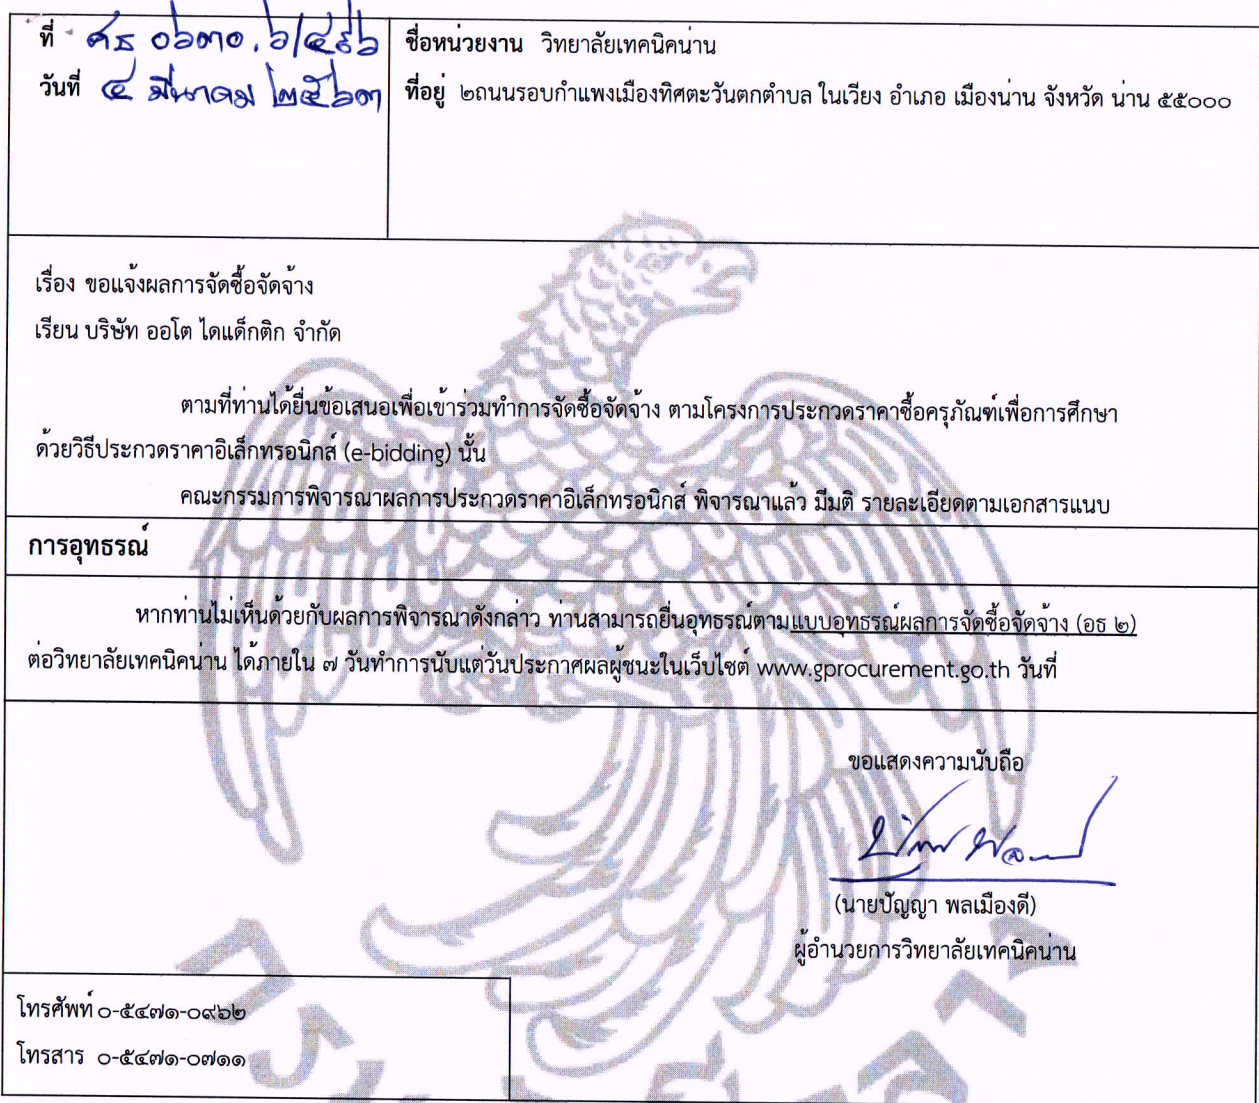 ที่ ศธ ๐๖๓๐.๖/๔๙๖
วันที่ ๔ มีนาคม ๒๕๖๓
ชื่อหน่วยงาน วิทยาลัยเทคนิคน่าน
ที่อยู่ ๒ถนนรอบกำแพงเมืองทิศตะวันตกตำบล ในเวียง อำเภอ เมืองน่าน จังหวัด น่าน ๕๕๐๐๐
เรื่อง ขอแจ้งผลการจัดซื้อจัดจ้าง
เรียน บริษัท ออโต ไดแด็กติก จำกัด
ตามที่ท่านได้ยื่นข้อเสนอเพื่อเข้าร่วมทำการจัดซื้อจัดจ้าง ตามโครงการประกวดราคาซื้อครุภัณฑ์เพื่อการศึกษา
ด้วยวิธีประกวดราคาอิเล็กทรอนิกส์ (e-bidding) นั้น
คณะกรรมการพิจารณาผลการประกวดราคาอิเล็กทรอนิกส์ พิจารณาแล้ว มีมติ รายละเอียดตามเอกสารแนบ
การอุทธรณ์
หากท่านไม่เห็นด้วยกับผลการพิจารณาดังกล่าว ท่านสามารถยื่นอุทธรณ์ตามแบบอุทธรณ์ผลการจัดซื้อจัดจ้าง (อธ ๒)
ต่อวิทยาลัยเทคนิคน่าน ได้ภายใน ๗ วันทำการนับแต่วันประกาศผลผู้ชนะในเว็บไซต์ www.gprocurement.go.th วันที่
ขอแสดงความนับถือ
(นายปัญญา พลเมืองดี)
ผู้อำนวยการวิทยาลัยเทคนิคน่าน
โทรศัพท์ ๐-๕๔๗๑-๐๙๖๒
โทรสาร ๐-๕๔๗๑-๐๗๑๑